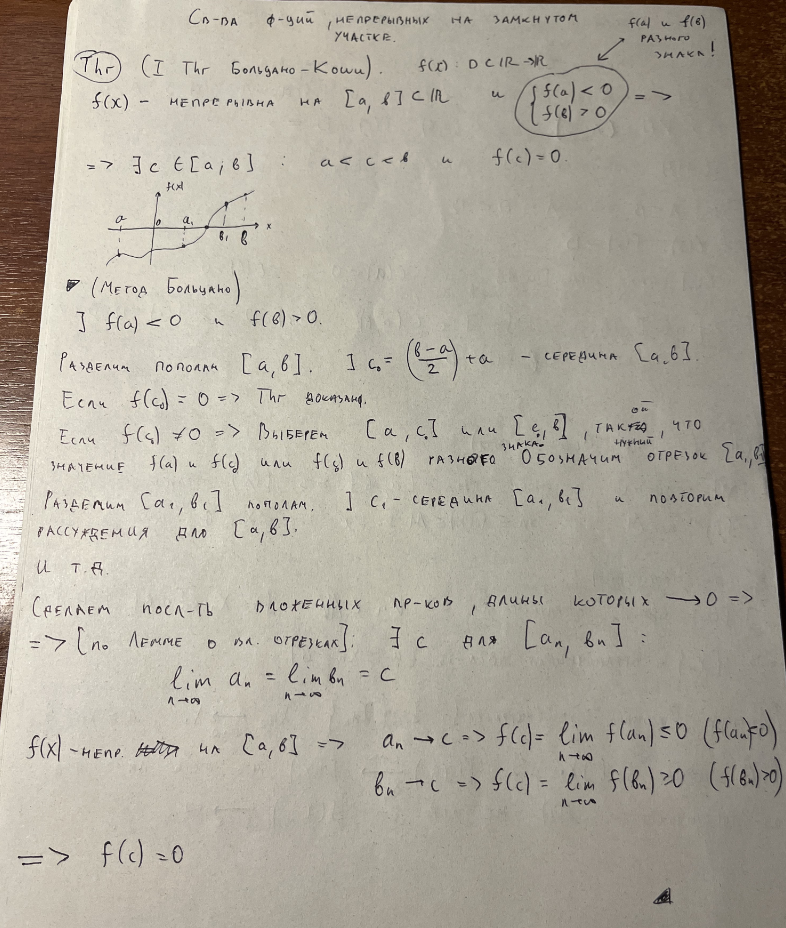 Св-ва ф-ций, непрерывных на замкнутом
участке.
f(a) и f(в)
разного
знака!
Thr (I Thr Больцано-Коши). f(x): D⊂ℝ→ℝ
f(x) - непрерывна на [a, в]⊂ℝ и { f(a) < 0 =>
{ f(в) > 0
=> ∃ c ∈ [a; в] : a < c < в и f(c) = 0.
f(x)
a 0 a₁ в₁ в x
(Метод Больцано)
] f(a) < 0 и f(в) > 0.
Разделим пополам [a, в]. ] c₀ = (в-a/2) + a - середина [a, в].
Если f(c₀) = 0 => Thr доказана.
Если f(c₀) ≠ 0 => Выберем [a, c₀] или [c₀, в], такой нужний, что
значение f(a) и f(c₀) или f(c₀) и f(в) разного знака. Обозначим отрезок [a₁, в₁]
Разделим [a₁, в₁] пополам. ] c₁ - середина [a₁, в₁] и повторим
рассуждения для [a, в].
И т.д.
Сделаем посл-ть вложенных пр-ков, длины которых → 0 =>
=> [по Лемме о вл. отрезках]: ∃ c для [aₙ, вₙ] :
lim aₙ = lim вₙ = c
n→∞ n→∞
f(x) - непр. на [a, в] => aₙ → c => f(c) = lim f(aₙ) ≤ 0 (f(aₙ)≤0)
n→∞
вₙ → c => f(c) = lim f(вₙ) ≥ 0 (f(вₙ)≥0)
n→∞
=> f(c) = 0